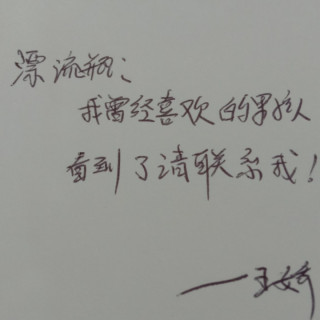 漂流瓶：
我曾经喜欢的男孩
看到了请联系我！
——王娇